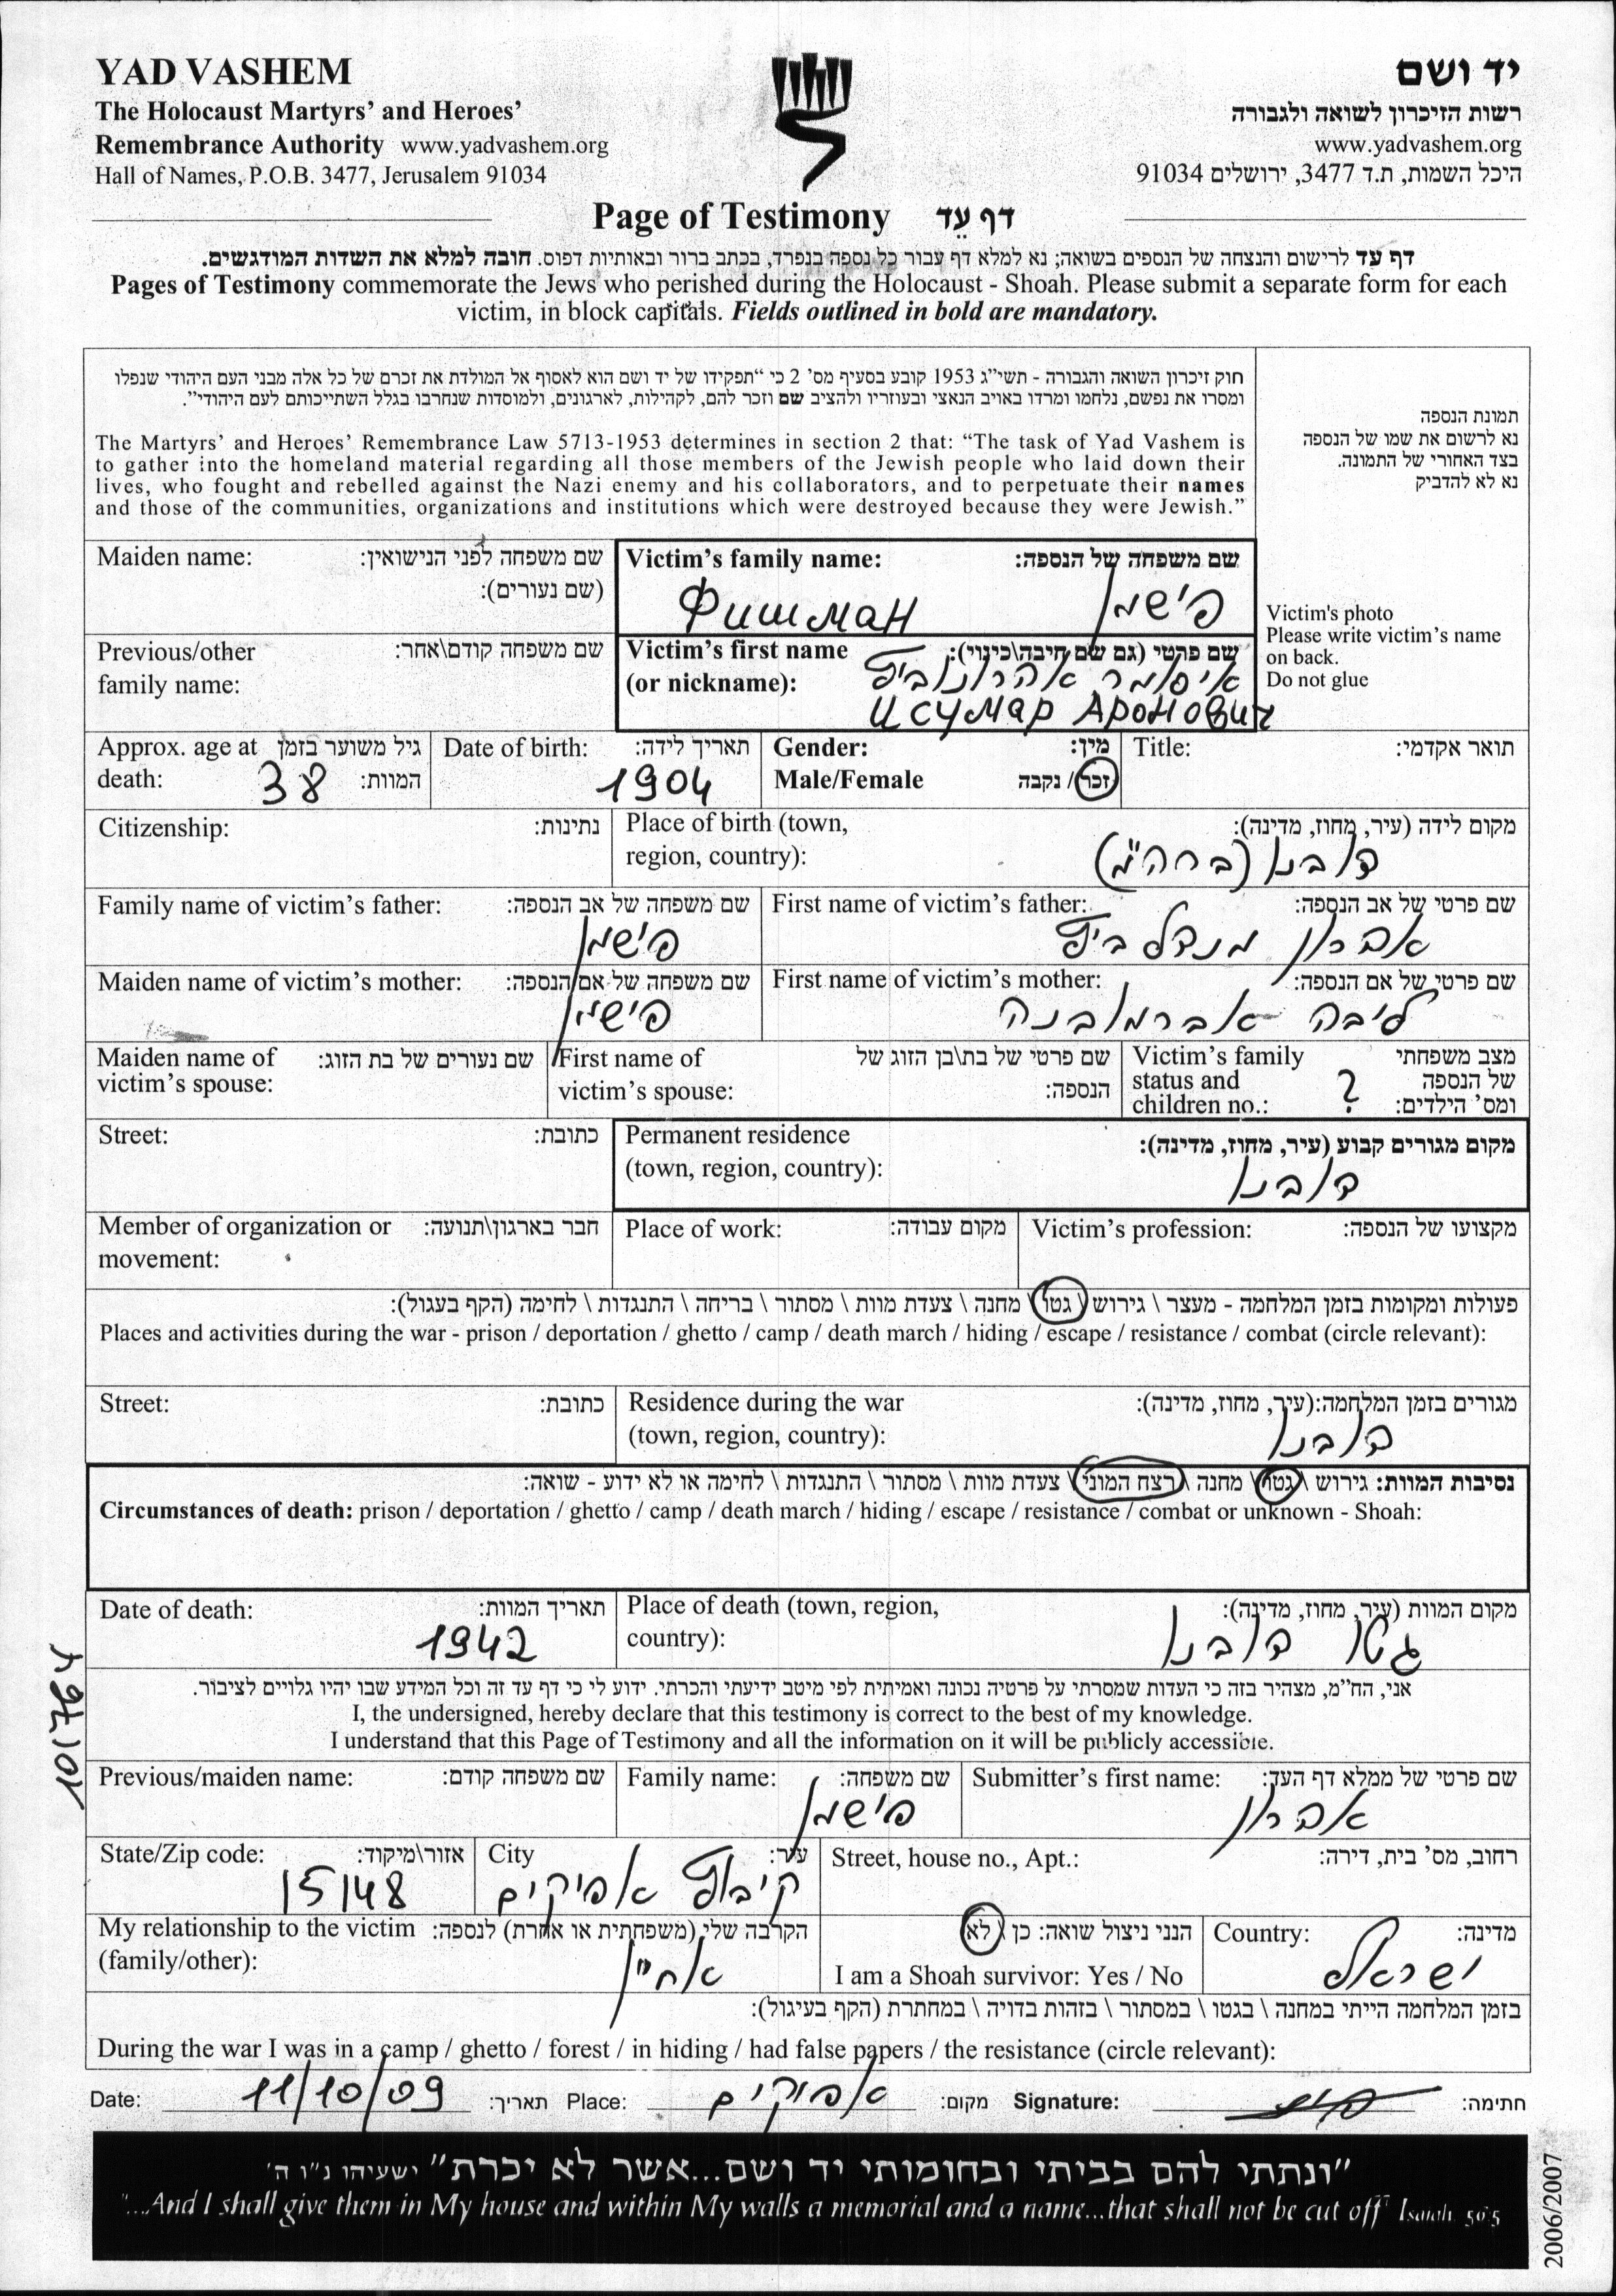 YAD VASHEM
The Holocaust Martyrs' and Heroes'
Remembrance Authority www.yadvashem.org
Hall of Names, P.O.B. 3477, Jerusalem 91034
יד ושם
רשות הזיכרון לשואה ולגבורה
www.yadvashem.org
היכל השמות, ת.ד 3477, ירושלים 91034
Page of Testimony דף עֵד
דף עד לרישום והנצחה של הנספים בשואה; נא למלא דף עבור כל נספה בנפרד, בכתב ברור ובאותיות דפוס. חובה למלא את השדות המודגשים.
Pages of Testimony commemorate the Jews who perished during the Holocaust - Shoah. Please submit a separate form for each
victim, in block capitals. Fields outlined in bold are mandatory.
חוק זיכרון השואה והגבורה - תשי"ג 1953 קובע בסעיף מס' 2 כי "תפקידו של יד ושם הוא לאסוף אל המולדת את זכרם של כל אלה מבני העם היהודי שנפלו
ומסרו את נפשם, נלחמו ומרדו באויב הנאצי ובעוזריו ולהציב שם וזכר להם, לקהילות, לארגונים, ולמוסדות שנחרבו בגלל השתייכותם לעם היהודי".
The Martyrs' and Heroes' Remembrance Law 5713-1953 determines in section 2 that: "The task of Yad Vashem is
to gather into the homeland material regarding all those members of the Jewish people who laid down their
lives, who fought and rebelled against the Nazi enemy and his collaborators, and to perpetuate their names
and those of the communities, organizations and institutions which were destroyed because they were Jewish."
תמונת הנספה
נא לרשום את שמו של הנספה
בצד האחורי של התמונה.
נא לא להדביק
Victim's photo
Please write victim's name
on back.
Do not glue
Maiden name: שם משפחה לפני הנישואין:
(שם נעורים):
Victim's family name: שם משפחה של הנספה:
Фишман פישמן
Previous/other שם משפחה קודם\אחר:
family name:
Victim's first name שם פרטי (גם שם חיבה\כינוי):
(or nickname): איסומר אהרונוביץ
Исумар Аронович
Approx. age at גיל משוער בזמן
death: 38 המוות:
Date of birth: תאריך לידה:
1904
Gender: מין:
Male/Female זכר / נקבה
Title: תואר אקדמי:
Citizenship: נתינות:
Place of birth (town, מקום לידה (עיר, מחוז, מדינה):
region, country): דובנו (ברה"מ)
Family name of victim's father: שם משפחה של אב הנספה:
פישמן
First name of victim's father: שם פרטי של אב הנספה:
אהרון מנדלביץ
Maiden name of victim's mother: שם משפחה של אם הנספה:
פישמן
First name of victim's mother: שם פרטי של אם הנספה:
ליבה אברמובנה
Maiden name of שם נעורים של בת הזוג:
victim's spouse:
First name of שם פרטי של בת\בן הזוג של
victim's spouse: הנספה:
Victim's family מצב משפחתי
status and ? של הנספה
children no.: ומס' הילדים:
Street: כתובת:
Permanent residence מקום מגורים קבוע (עיר, מחוז, מדינה):
(town, region, country): דובנו
Member of organization or חבר בארגון\תנועה:
movement:
Place of work: מקום עבודה:
Victim's profession: מקצועו של הנספה:
פעולות ומקומות בזמן המלחמה - מעצר \ גירוש \ גטו \ מחנה \ צעדת מוות \ מסתור \ בריחה \ התנגדות \ לחימה (הקף בעגול):
Places and activities during the war - prison / deportation / ghetto / camp / death march / hiding / escape / resistance / combat (circle relevant):
Street: כתובת:
Residence during the war מגורים בזמן המלחמה:(עיר, מחוז, מדינה):
(town, region, country): דובנו
נסיבות המוות: גירוש \ גטו \ מחנה \ רצח המוני \ צעדת מוות \ מסתור \ התנגדות \ לחימה או לא ידוע - שואה:
Circumstances of death: prison / deportation / ghetto / camp / death march / hiding / escape / resistance / combat or unknown - Shoah:
Date of death: תאריך המוות:
1942
Place of death (town, region, מקום המוות (עיר, מחוז, מדינה):
country): גטו דובנו
אני, הח"מ, מצהיר בזה כי העדות שמסרתי על פרטיה נכונה ואמיתית לפי מיטב ידיעתי והכרתי. ידוע לי כי דף עד זה וכל המידע שבו יהיו גלויים לציבור.
I, the undersigned, hereby declare that this testimony is correct to the best of my knowledge.
I understand that this Page of Testimony and all the information on it will be publicly accessible.
Previous/maiden name: שם משפחה קודם:
Family name: שם משפחה:
פישמן
Submitter's first name: שם פרטי של ממלא דף העד:
אהרון
State/Zip code: אזור\מיקוד:
15148
City עיר:
קיבוץ אפיקים
Street, house no., Apt.: רחוב, מס' בית, דירה:
My relationship to the victim הקרבה שלי (משפחתית או אחרת) לנספה:
(family/other): אחיין
הנני ניצול שואה: כן \ לא
I am a Shoah survivor: Yes / No
Country: מדינה:
ישראל
בזמן המלחמה הייתי במחנה \ בגטו \ במסתור \ בזהות בדויה \ במחתרת (הקף בעיגול):
During the war I was in a camp / ghetto / forest / in hiding / had false papers / the resistance (circle relevant):
Date: 11/10/09 תאריך: Place: אפיקים מקום: Signature: חתימה:
"ונתתי להם בביתי ובחומותי יד ושם...אשר לא יכרת" ישעיהו נ"ו ה'
"...And I shall give them in My house and within My walls a memorial and a name...that shall not be cut off" Isaiah 56:5
2006/2007